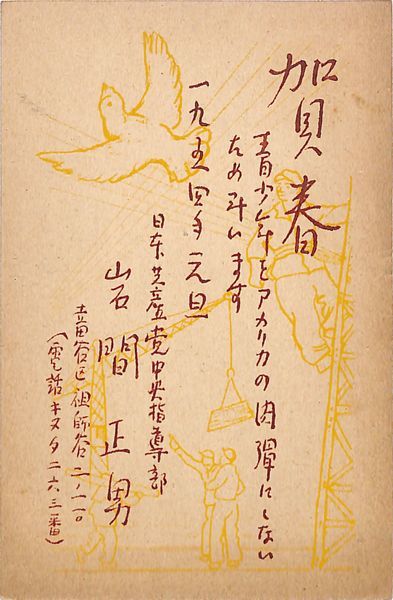 賀春
青少年をアメリカの肉弾にしない
ため斗います
一九五四年元旦
日本共産党中央指導部
岩間正男
世田谷区祖師谷二ノ一一〇
(電話キヌタ二六三一番)